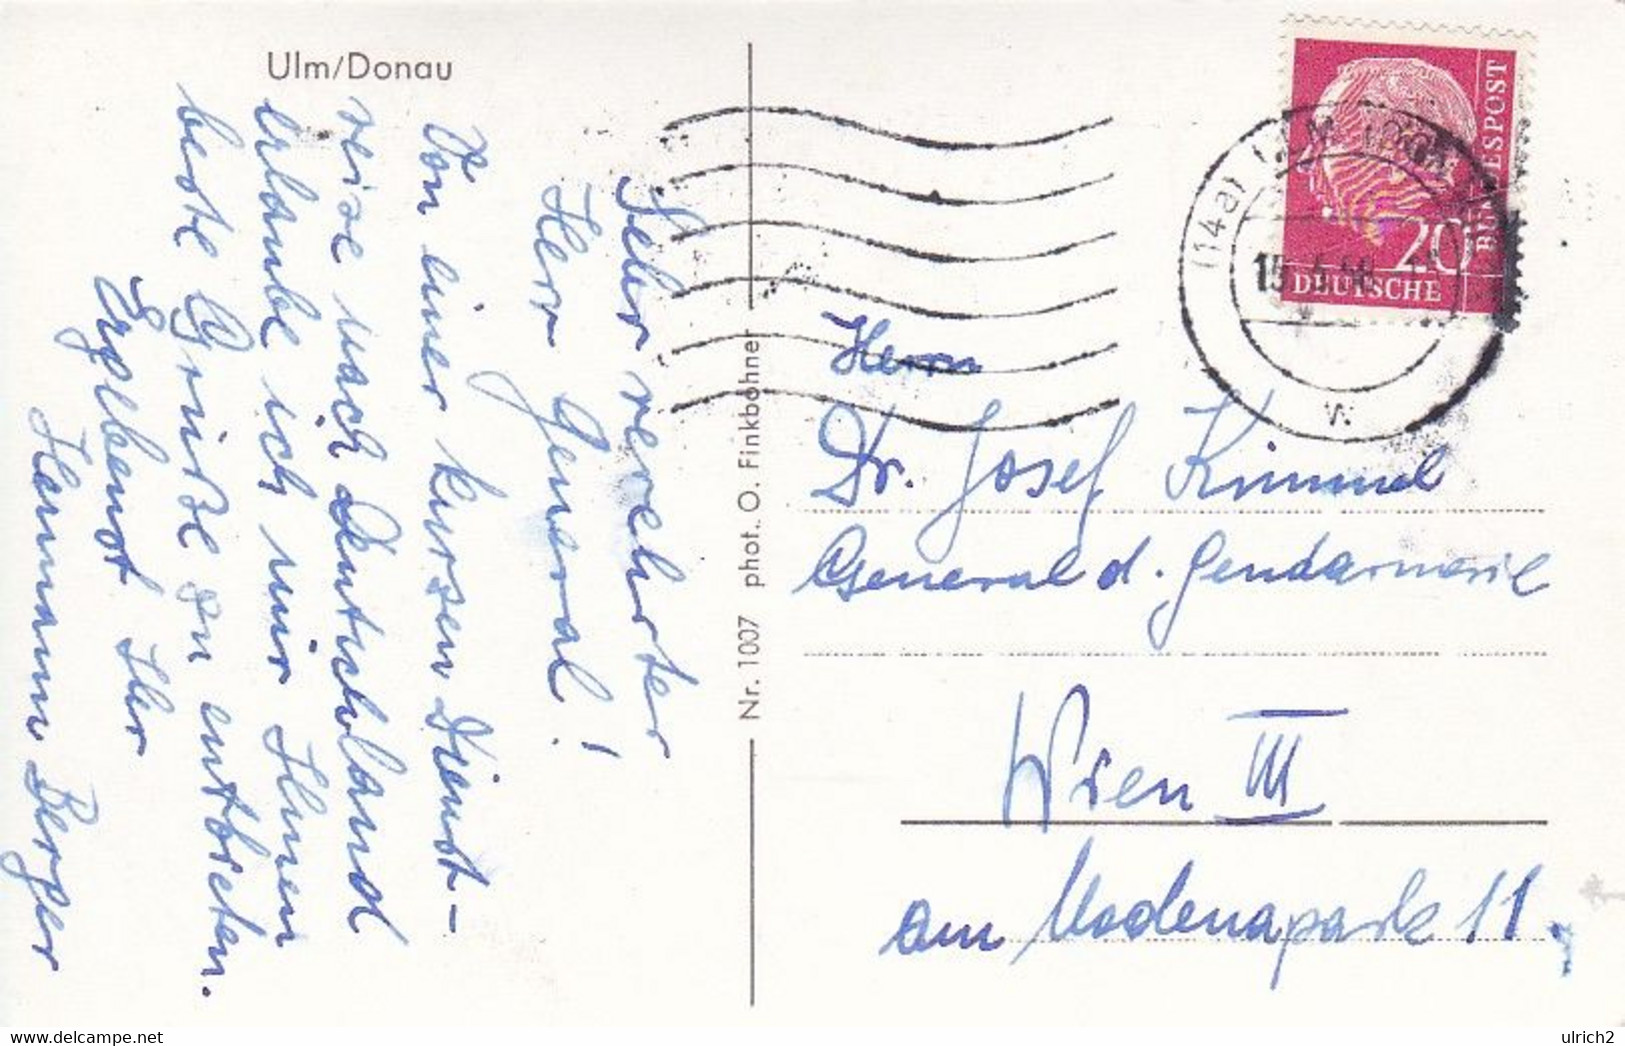 Ulm/Donau
Sehr verehrter
Herr General!
Von einer kurzen Dienst-
reise nach Deutschland
erlaube ich mir Ihnen
beste Grüße zu entbieten.
Ergebenst Ihr
Hermann Berger
Nr. 1007 phot. O. Finkbohner
(14a) ULM (DONAU)
w
20
DEUTSCHE
BUNDESPOST
Herrn
Dr. Josef Kimmel
General d. Gendarmerie
Wien III
am Modenapark 11.
www.delcampe.net
ulrich2